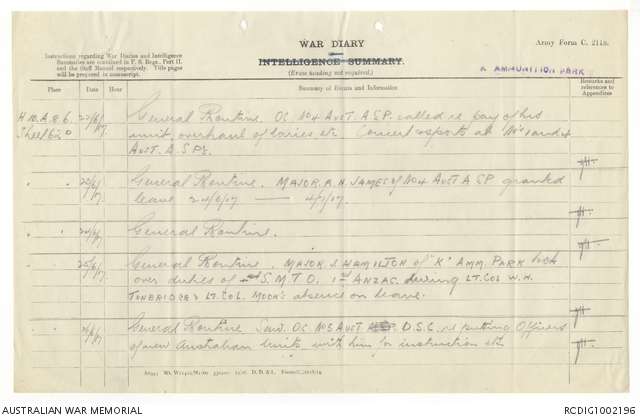 WAR DIARY
Army Form C. 2118.
Instructions regarding War Diaries and Intelligence
Summaries are contained in F. S. Regs., Part II.
and the Staff Manual respectively. Title pages
will be prepared in manuscript.
INTELLIGENCE SUMMARY.
(Erase heading not required.)
AMMUNITION PARK
Place Date Hour Summary of Events and Information Remarks and references to Appendices
22/6/17 General Routine. OC No 4 Aust A.S.P. called re pay of his
unit, overhaul of lorries, etc. Concert & sports at No's 1 and 4
AUST. A.S.P's.
General Routine. MAJOR A.H. JAMES of No 4 AUST A SP granted
leave 24/6/17 — 4/7/17.
General Routine.
25/6/17 General Routine. MAJOR J. HAMILTON of "K" AMM. PARK took
over duties of S.M.T.O. 1st ANZAC during LT. COL W.H.
LT. COL. absence on leave.
26/6/17 General Routine. Saw OC No 5 AUST D.S.C. re putting Officers
of new Australian Units with him for instruction etc
AUSTRALIAN WAR MEMORIAL
RCDIG1002196